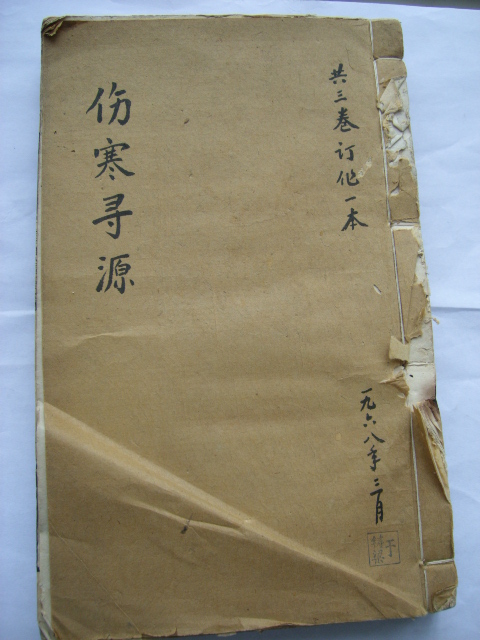 共三卷订作一本
伤寒寻源
一九六八年三月